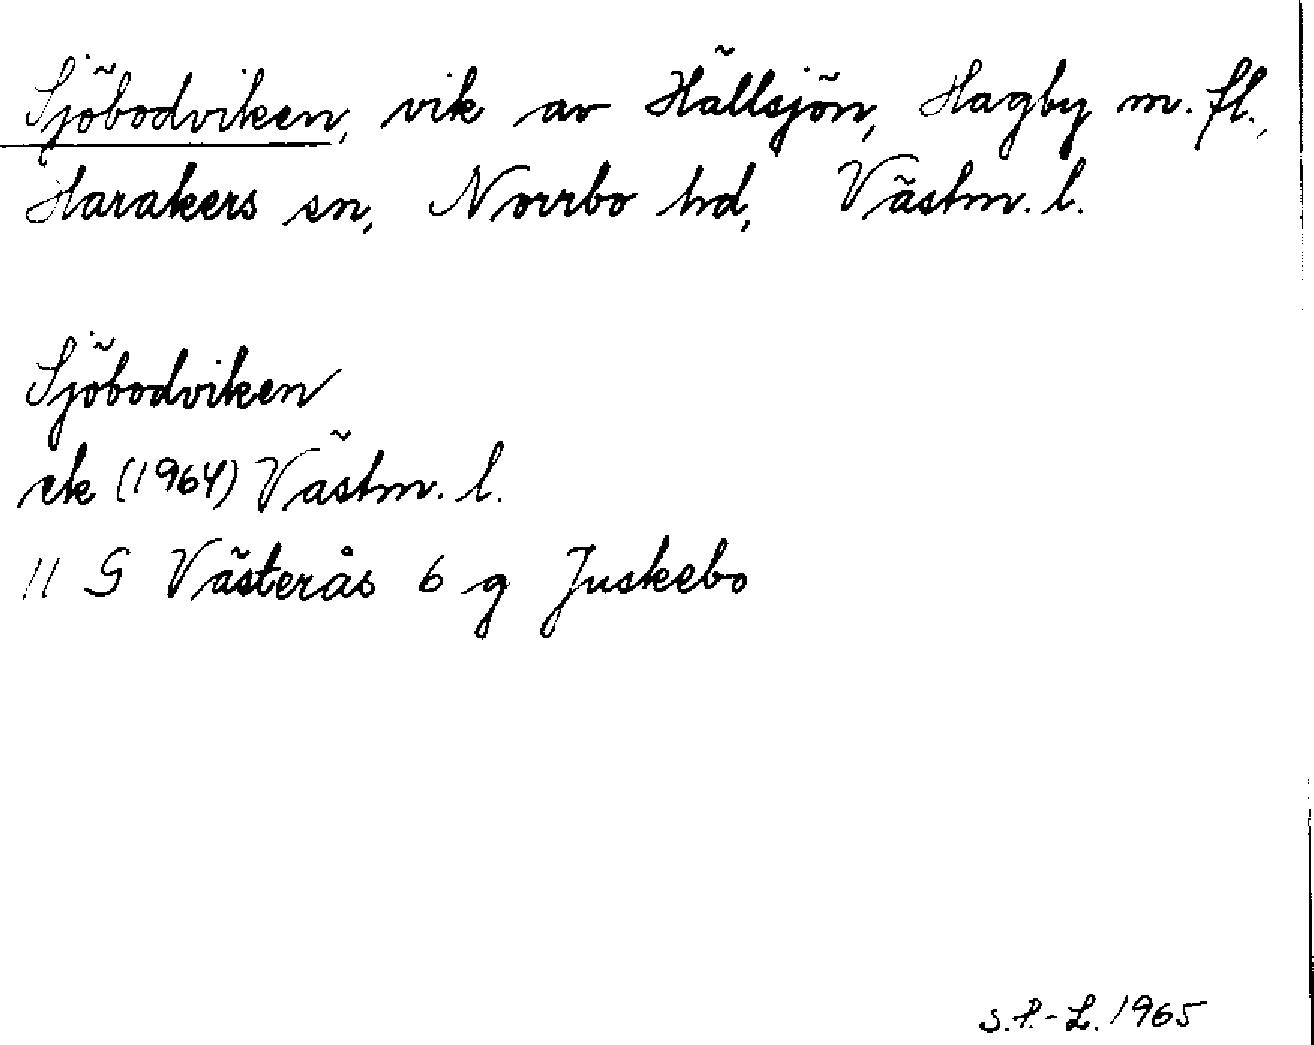 Sjöbodviken, vik av Hällsjön, Hagby m. fl.,
Harakers sn, Norrbo hd, Västm. l.
Sjöbodviken
ek (1964) Västm. l.
11 G Västerås 6 g Juskebo
S.P.-L. 1965